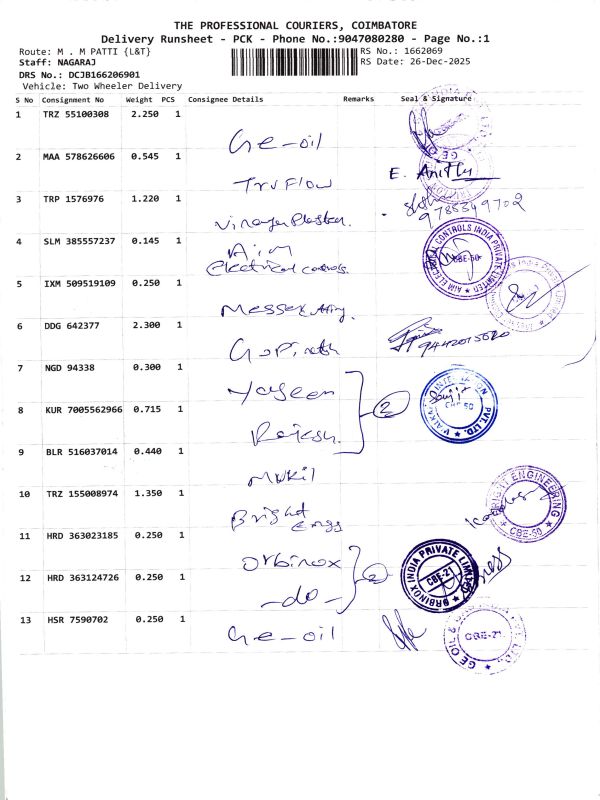 THE PROFESSIONAL COURIERS, COIMBATORE
Delivery Runsheet - PCK - Phone No.:9047080280 - Page No.:1
Route: M . M PATTI {L&T} RS No.: 1662069
Staff: NAGARAJ RS Date: 26-Dec-2025
DRS No.: DCJB166206901
Vehicle: Two Wheeler Delivery
S No Consignment No Weight PCS Consignee Details Remarks Seal & Signature
1 TRZ 55100308 2.250 1
Ge-oil
2 MAA 578626606 0.545 1
Truflow E. Anithy
3 TRP 1576976 1.220 1
9785349702
4 SLM 385557237 0.145 1
Aim
Electrical controls.
AIM ELECTRICAL CONTROLS INDIA PRIVATE LIMITED CBE-50
5 IXM 509519109 0.250 1
Messer
6 DDG 642377 2.300 1
Gopinath
7 NGD 94338 0.300 1
Yaseen
8 KUR 7005562966 0.715 1
2
PVT. LTD.
Rajesh.
9 BLR 516037014 0.440 1
Mukil
10 TRZ 155008974 1.350 1
Bright
Enggs
BRIGHT ENGINEERING CBE-50
11 HRD 363023185 0.250 1
Orbinox 2
ORBINOX INDIA PRIVATE LIMITED CBE-21
12 HRD 363124726 0.250 1
-do-
13 HSR 7590702 0.250 1
Ge-oil
GE OIL & CBE-21 PVT. LTD.